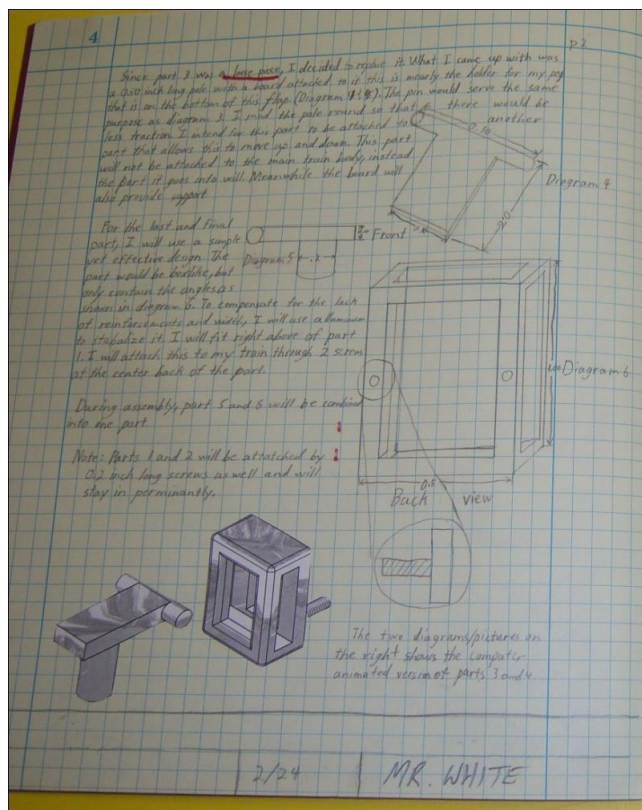 4
p 2
Since part 3 was a lose piece, I decided to replace it. What I came up with was
a inch long pole with a board attached to it this is mearly the holder for my peg
that is on the bottom of this flap. (Diagram The pin would serve the same
purpose as diagram 3. I mad the pole round so that there would be
less traction. I intend for this part to be attached to another
part that allows this to move up and down. This part
will not be attached to the main train body, instead
the part it goes into will. Meanwhile the board will
also provide support.
Diagram 4
For the last and final
part, I will use a simple
yet effective design. The
part would be boxlike, but
only contain the angles as
shown in diagram 6. To compensate for the lack
of reinforcements and I will use alluminum
to stabalize it. I will fit right above of part
1. I will attach this to my train through 2 screws
at the center back of the part.
Diagram 5
.2
Front
Diagram 6
During assembly, part 5 and 6 will be combined
into one part
Note: Parts 1 and 2 will be attatched by
0.2 inch long screws as well and will
stay in perminantly.
0.8
Back view
The two diagrams/pictures on
the right shows the computer
animated version of parts 3 and 4.
2/24
MR. WHITE